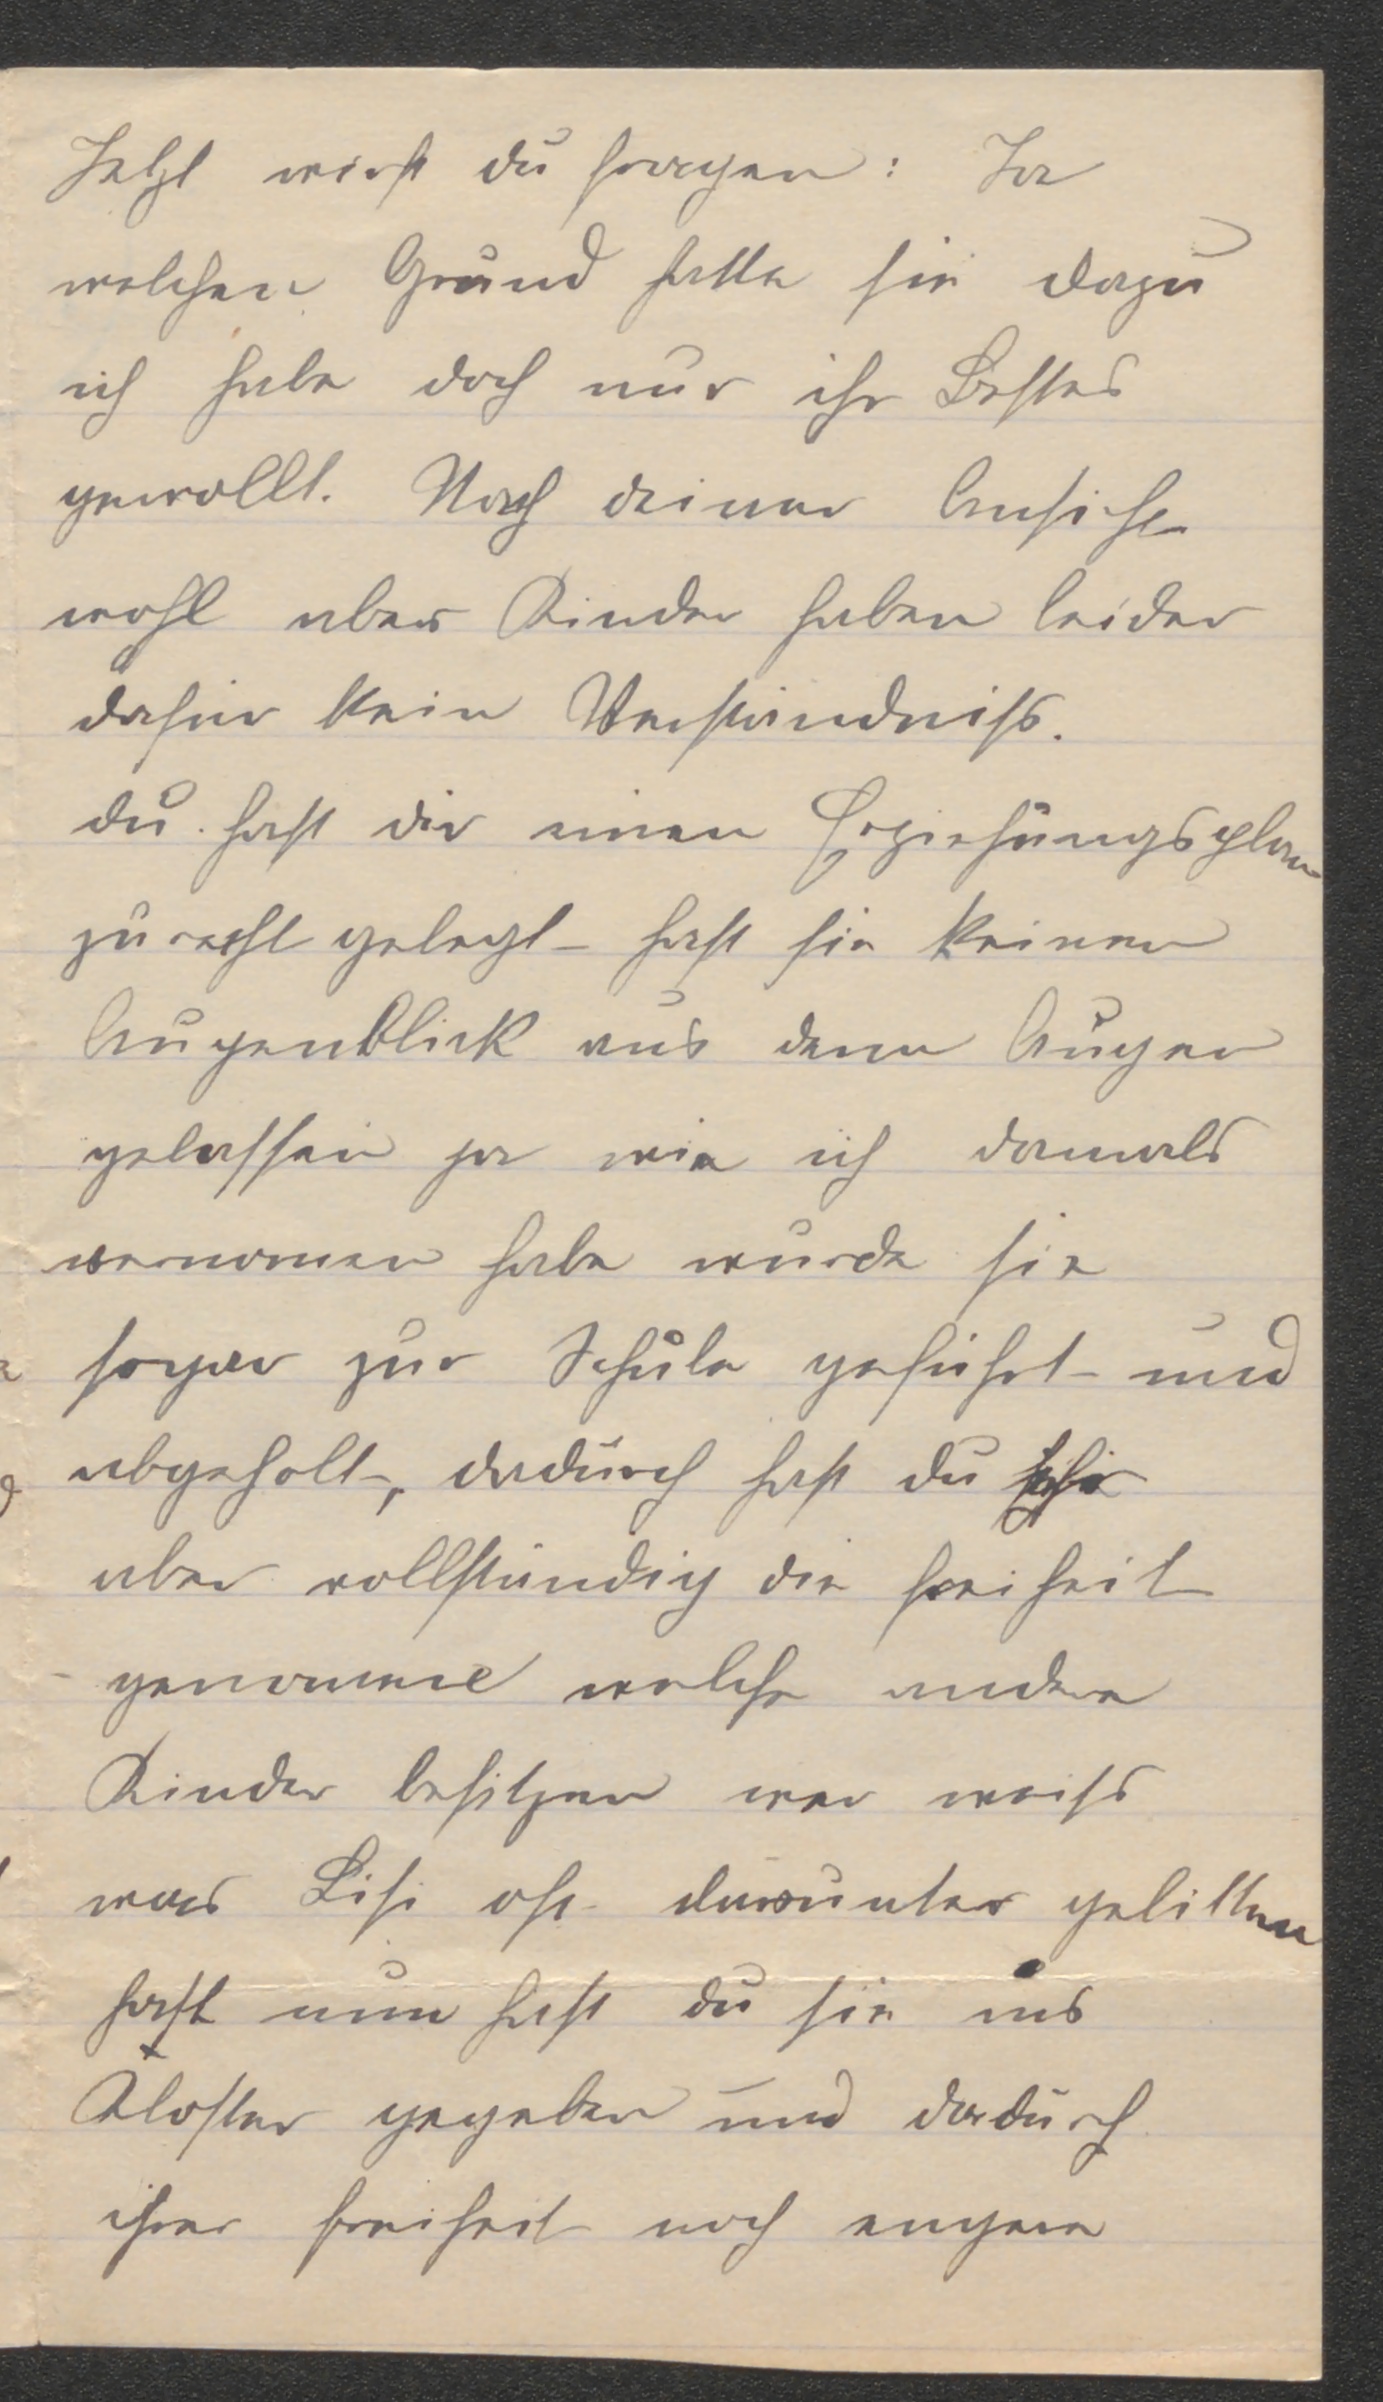 Jetzt wirst du fragen: Ja
welchen Grund hatte sie dazu
ich habe doch nur ihr Bestes
gewollt. Nach deiner Ansicht
wohl aber Kinder haben leider
dafür kein Verständniss.
du hast dir einen Erziehungsplan
zurecht gelegt hast sie keinen
Augenblick aus denn Augen
gelassen ja wie ich damals
vernomen habe wurde sie
sogar zur Schule geführt und
abgeholt, dadurch hast du
aber vollständig die freiheit
genomme welche andere
Kinder besitzen wer weiss
was Lisi oft darunter gelitten
hast nun hast du sie ins
Kloster gegeben und dadurch
ihrer freiheit noch engere